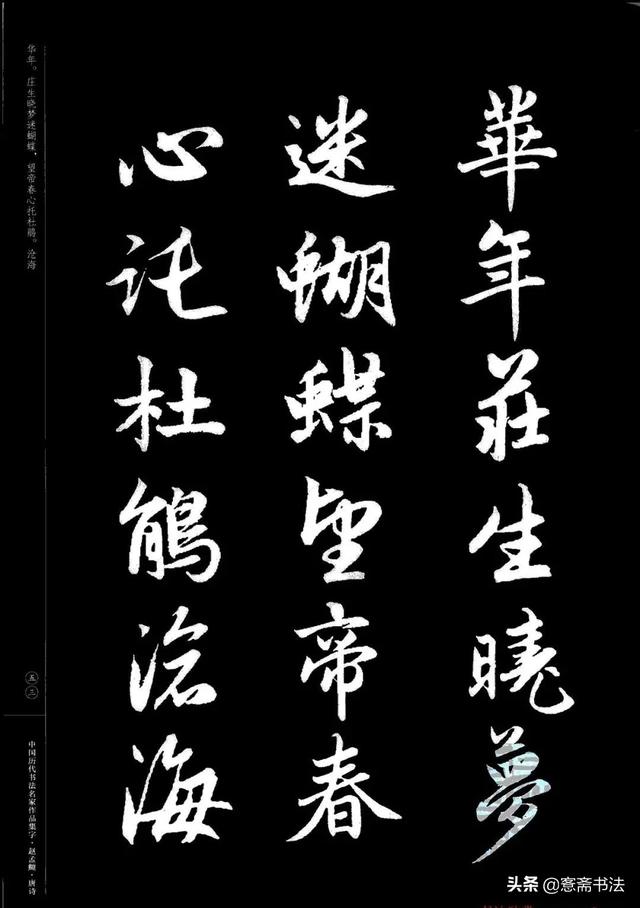 華年莊生曉夢
迷蝴蝶望帝春
心託杜鵑滄海
华年。庄生晓梦迷蝴蝶，望帝春心托杜鹃。沧海
五三
中国历代书法名家作品集字·赵孟頫·唐诗
头条 @窓斋书法